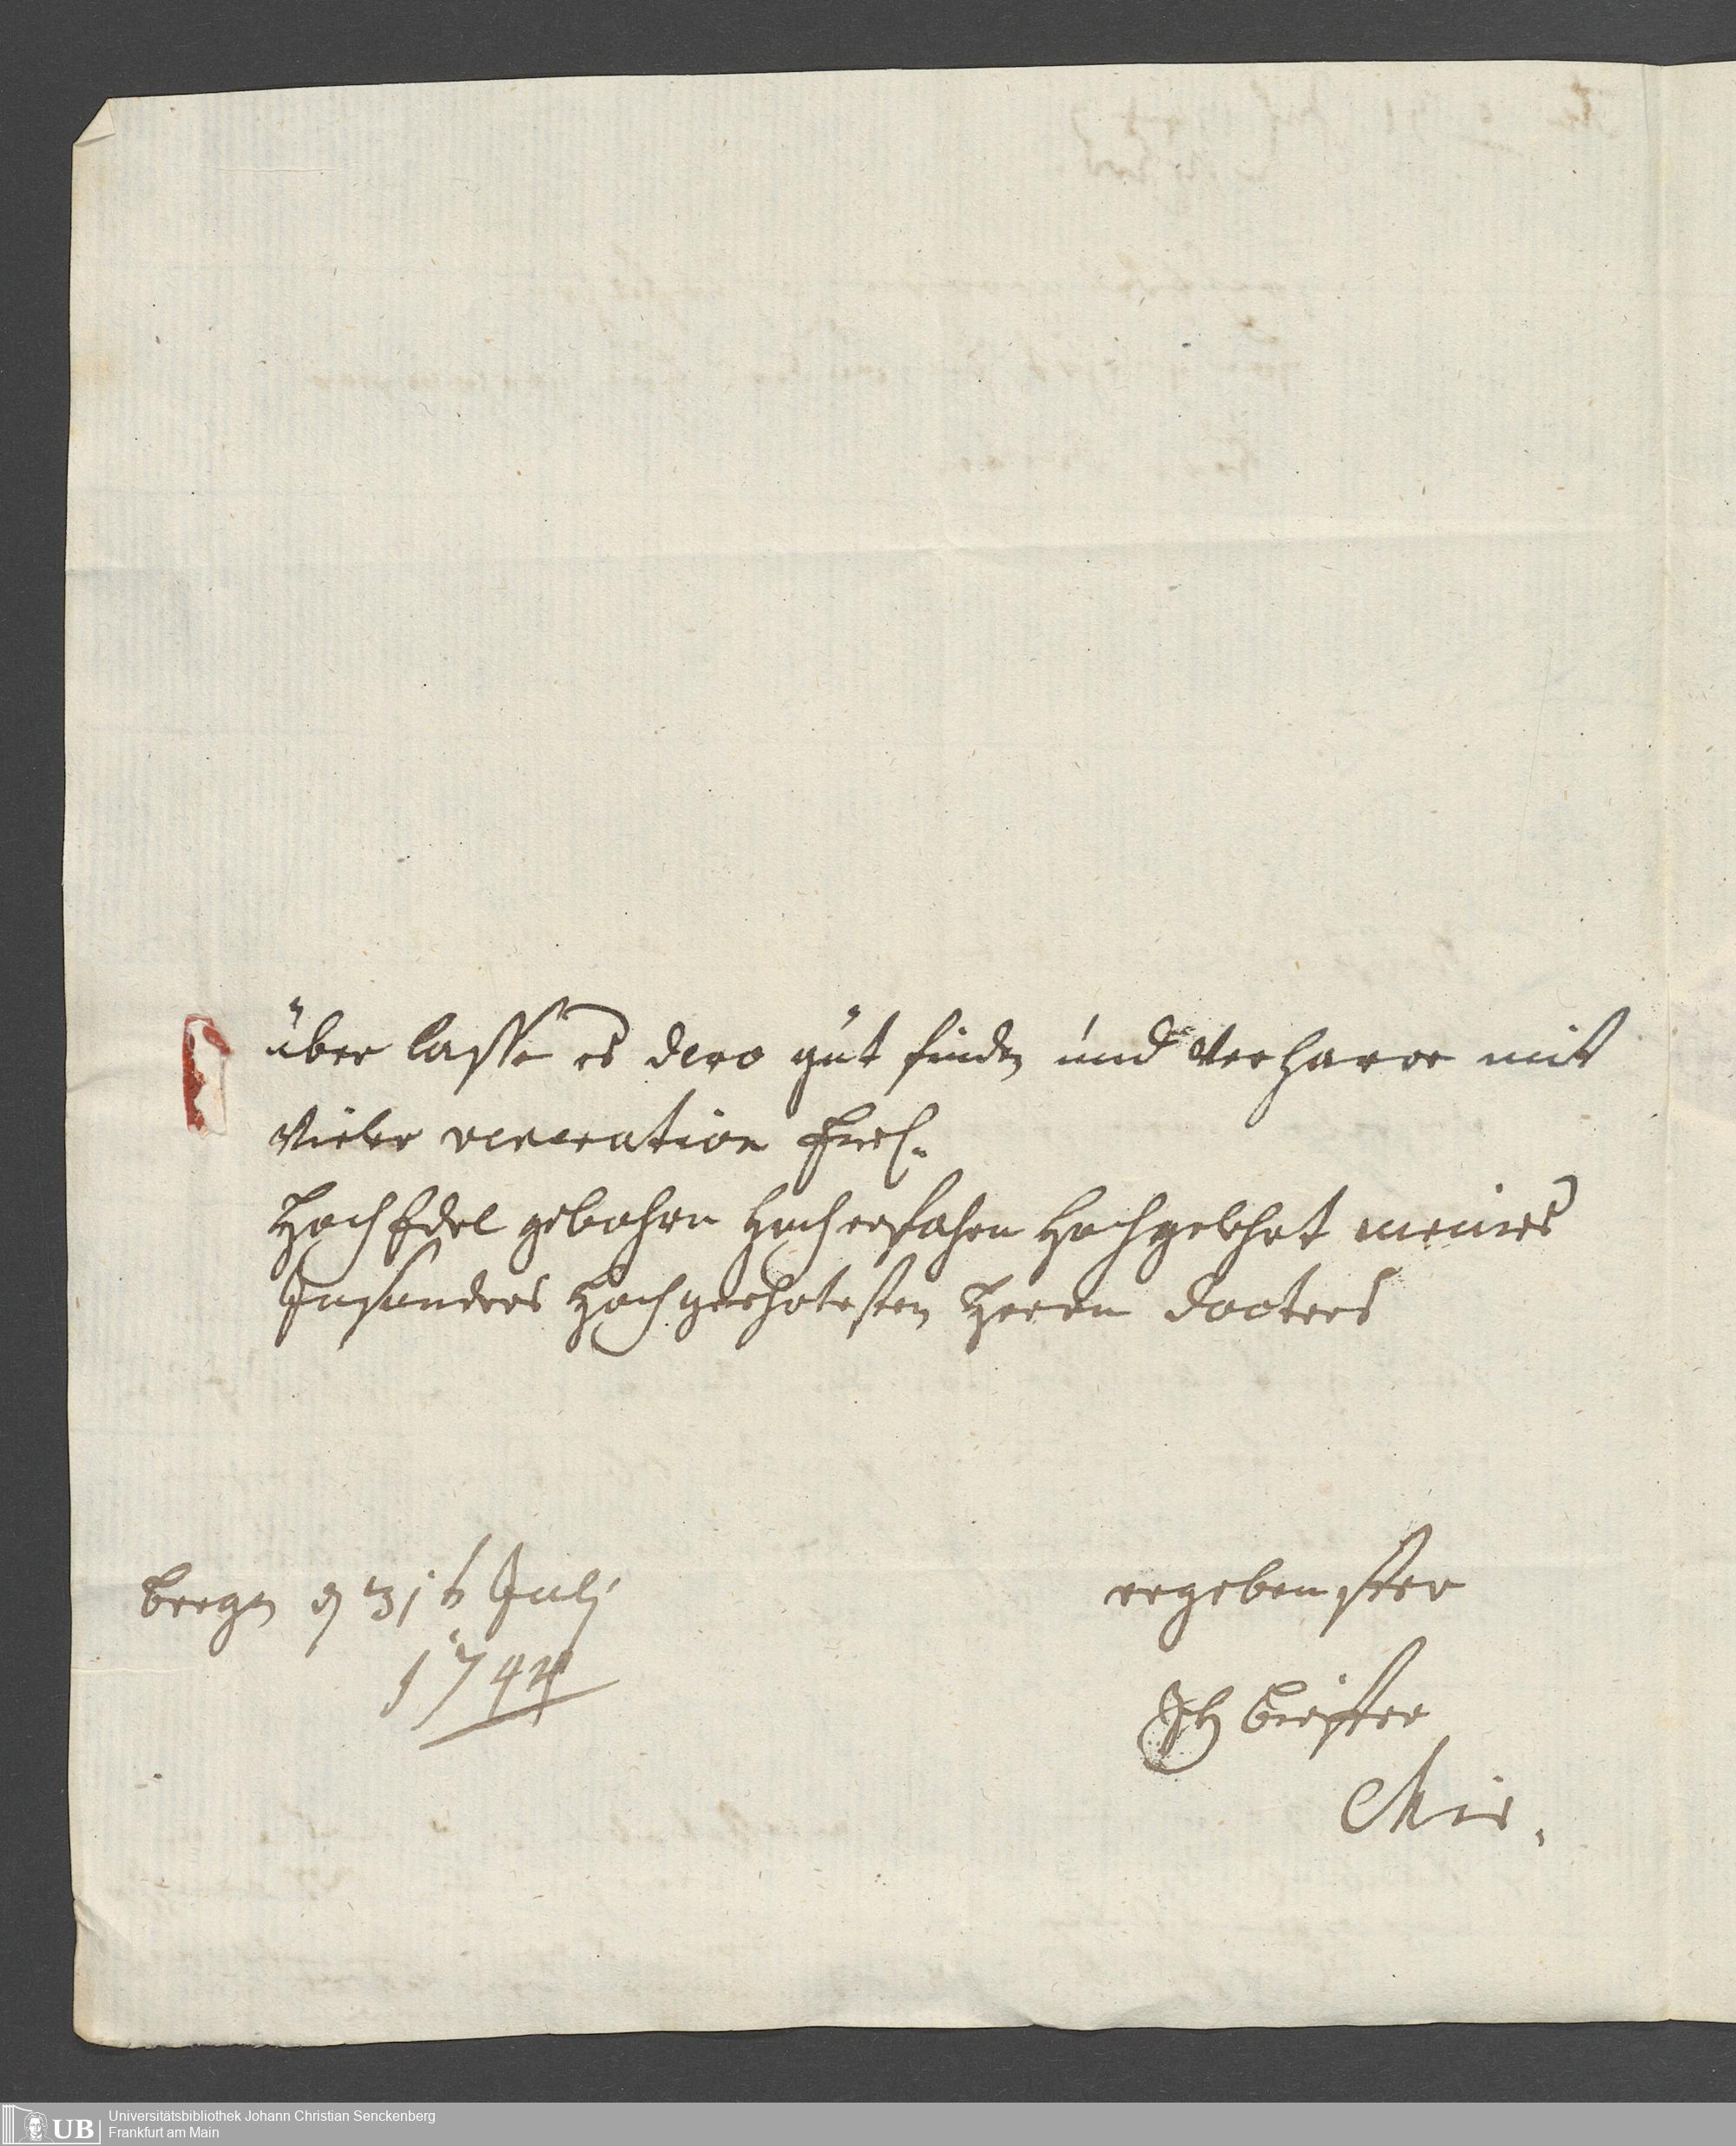 über lasse es dero gut finden und Verharre mit
Vieler veneration Ewl.
HochEdel gebohrn Hocherfahrn Hochgelehrt meines
Insonders Hochgeehrtesten Herrn docters
bergen d 31 t Julj
1744
ergebenster
Biester
Chir.
UB
Universitätsbibliothek Johann Christian Senckenberg
Frankfurt am Main